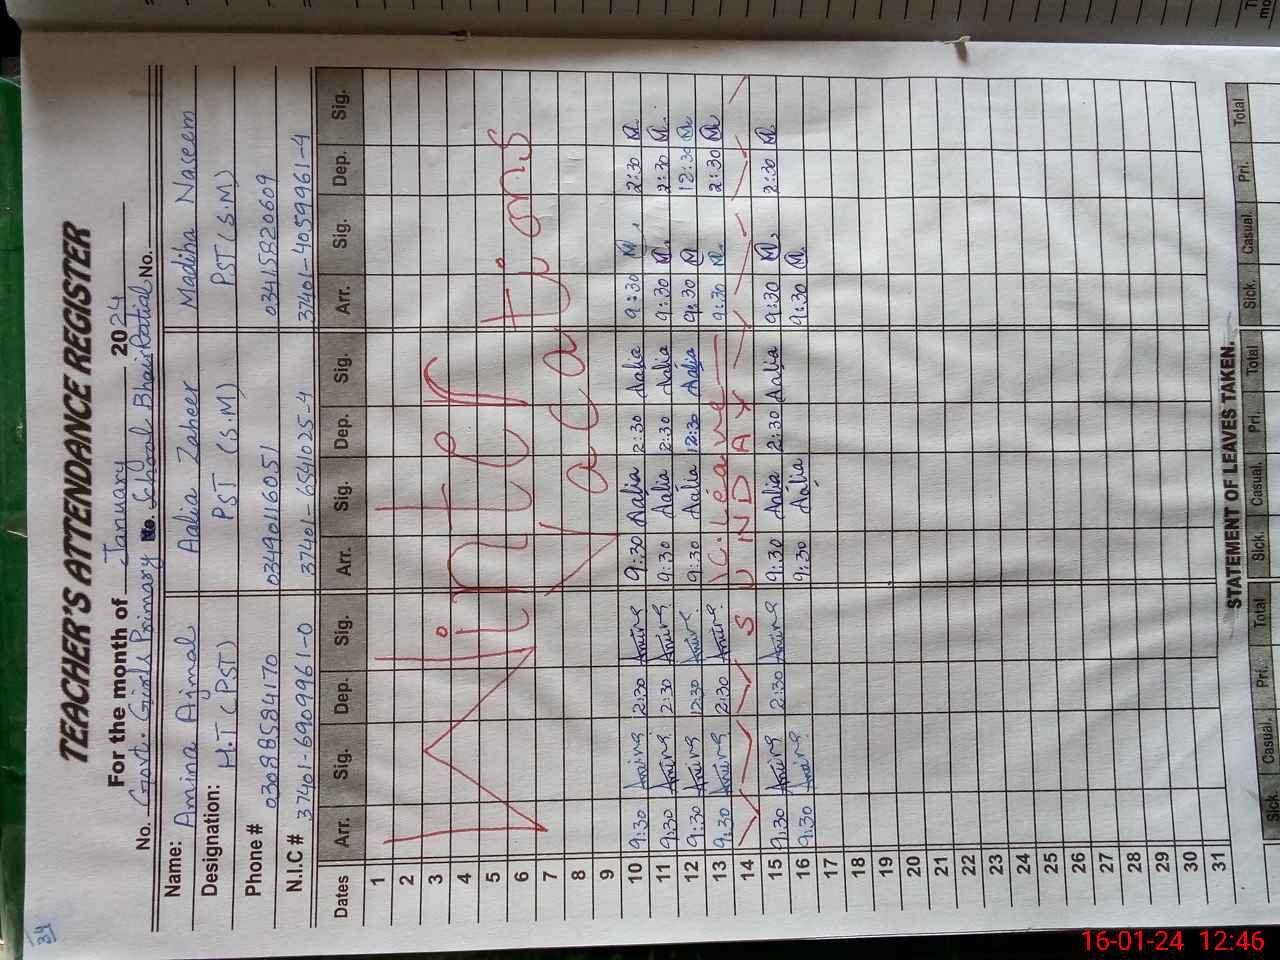 34
TEACHER'S ATTENDANCE REGISTER
For the month of January 2024
No. Govt. Girls Primary School Bhair Ratial No.
Name: Amina Ajmal Aalia Zaheer Madiha Naseem
Designation: H.T (PST) PST (S.M) PST (S.M)
Phone # 03088584170 03490116051 03415820609
N.I.C # 37401-6909961-0 37401-6541025-4 37401-4059961-4
Dates Arr. Sig. Dep. Sig. Arr. Sig. Dep. Sig. Arr. Sig. Dep. Sig.
1
2
3
4
5
6
7
8
9
Winter
Vacations
10 9:30 Amina 2:30 Amina 9:30 Aalia 2:30 Aalia 9:30 M. 2:30 M.
11 9:30 Amina 2:30 Amina 9:30 Aalia 2:30 Aalia 9:30 M. 2:30 M.
12 9:30 Amina 12:30 Amina 9:30 Aalia 12:30 Aalia 9:30 M 12:30 M.
13 9:30 Amina 2:30 Amina C.Leave 9:30 M. 2:30 M
14 SUNDAY
15 9:30 Amina 2:30 Amina 9:30 Aalia 2:30 Aalia 9:30 M. 2:30 M.
16 9:30 Amina 9:30 Aalia 9:30 M.
17
18
19
20
21
22
23
24
25
26
27
28
29
30
31
STATEMENT OF LEAVES TAKEN.
Sick. Casual. Pri. Total Sick. Casual. Pri. Total Sick. Casual. Pri. Total
16-01-24 12:46